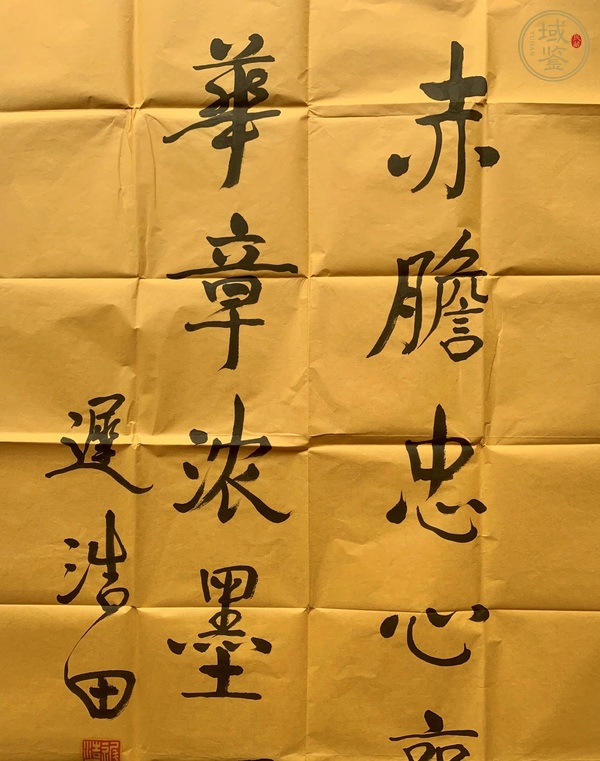 赤膽忠心
華章浓墨
遲浩田
域鉴